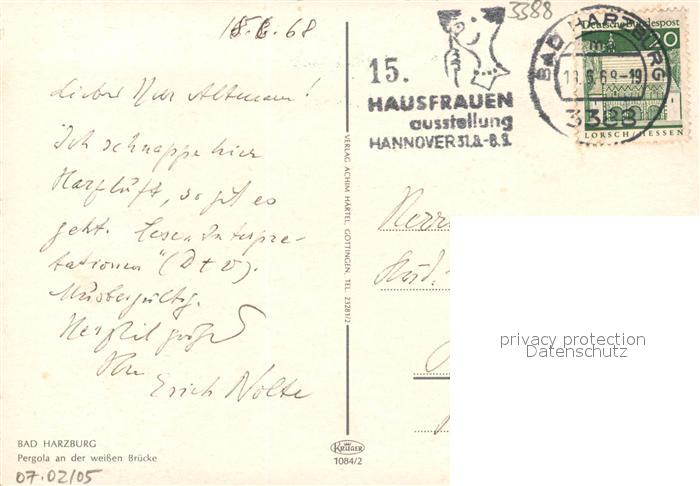 18.6.68
Lieber Herr Altmann!
Ich schnappe hier
Harzluft, so gut es
geht. Lese „Interpre-
tationen“ (DtV).
Mustergültig.
Herzlich grüßt
Ihr
Erich Nolte
BAD HARZBURG
Pergola an der weißen Brücke
07.02/05
VERLAG ACHIM HÄRTEL, GÖTTINGEN, TEL. 23281/2
KRÜGER
1084/2
3388
15.
HAUSFRAUEN
ausstellung
HANNOVER 31.8.-8.9.
BAD HARZBURG
18.6.68-19
3388
Deutsche Bundespost
20
LORSCH/HESSEN
Herrn
Stud.
privacy protection
Datenschutz